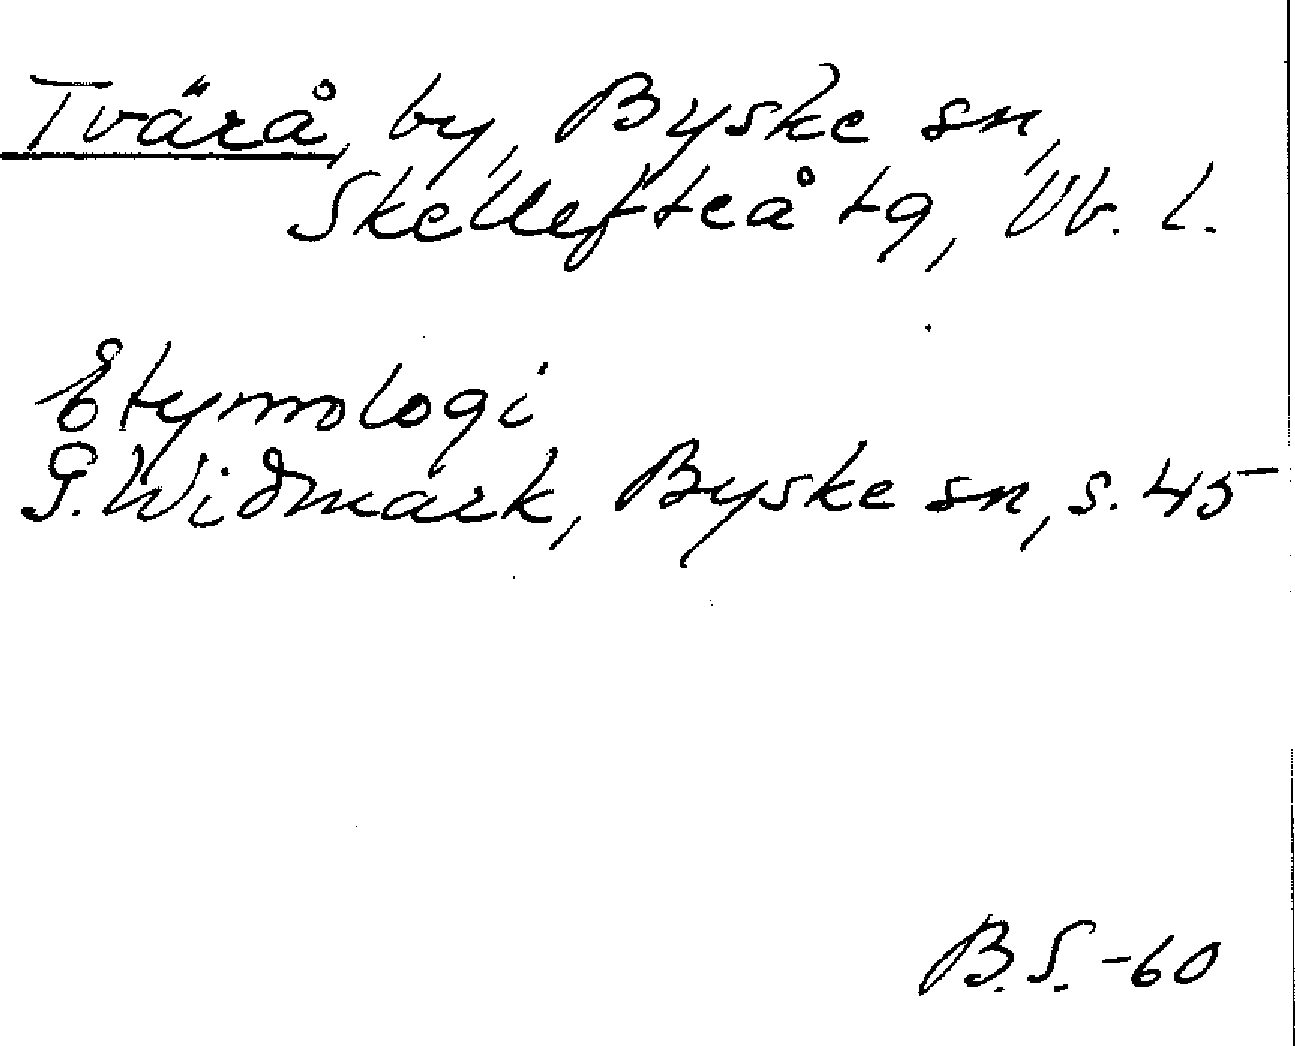 Tvärå, by, Byske sn,
Skellefteå tg, Vb. l.
Etymologi
G. Widmark, Byske sn, s. 45
B.S. -60